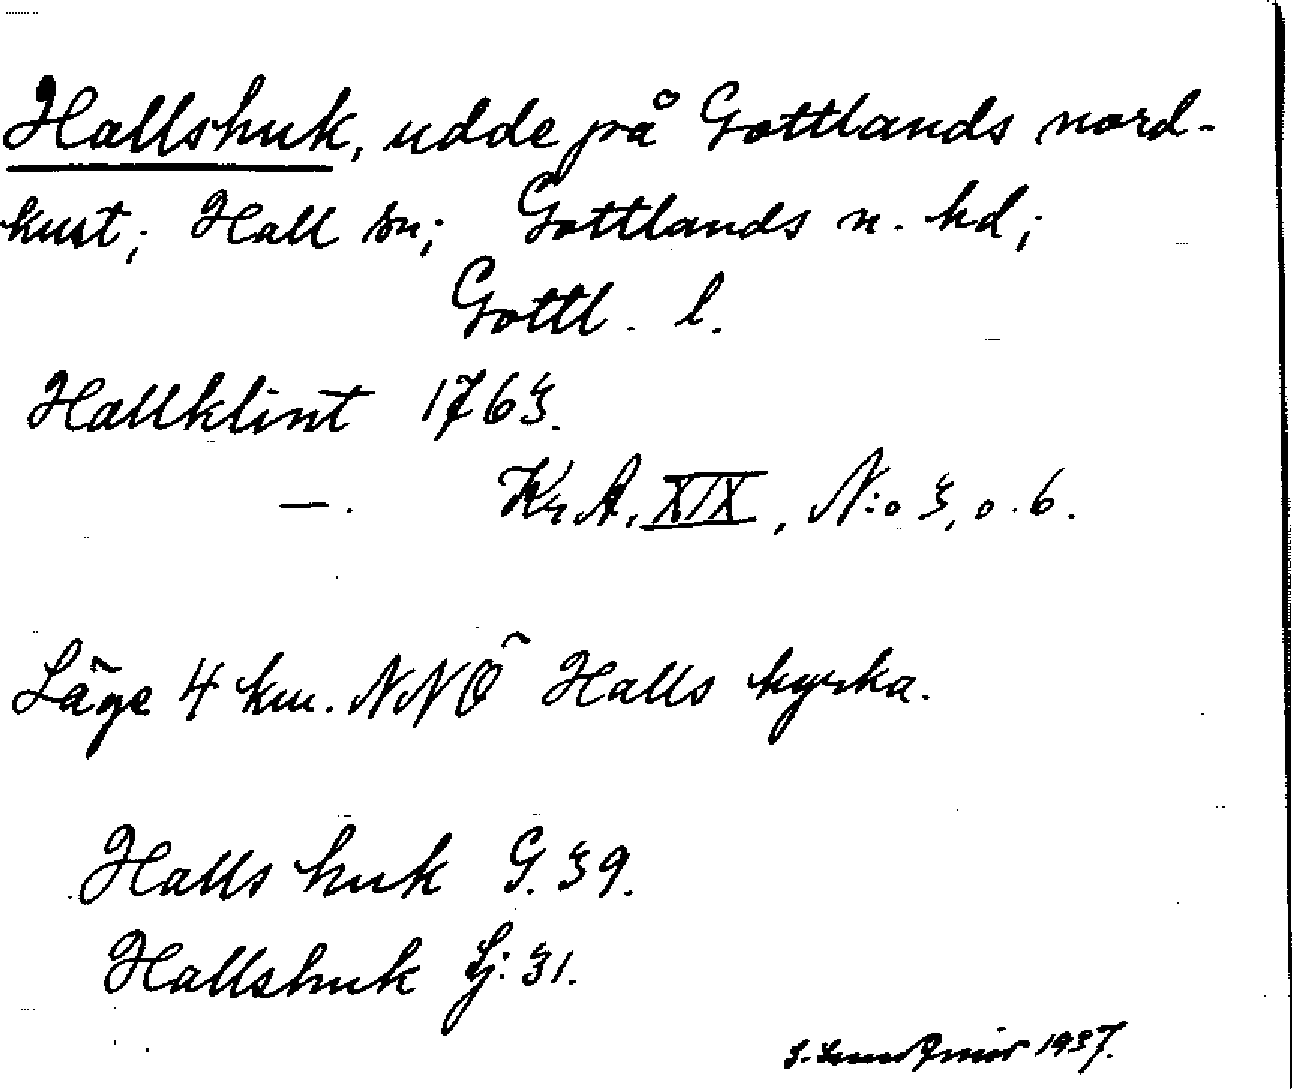 Hallshuk, udde på Gottlands nord-
kust; Hall sn; Gottlands n. hd;
Gottl. l.
Hallklint 1763.
—. Kr. A. XIX, N:o 3, o. 6.
Läge 4 km. NNÖ Halls kyrka.
Halls huk G. 39.
Hallshuk Lj: 31.
1937.